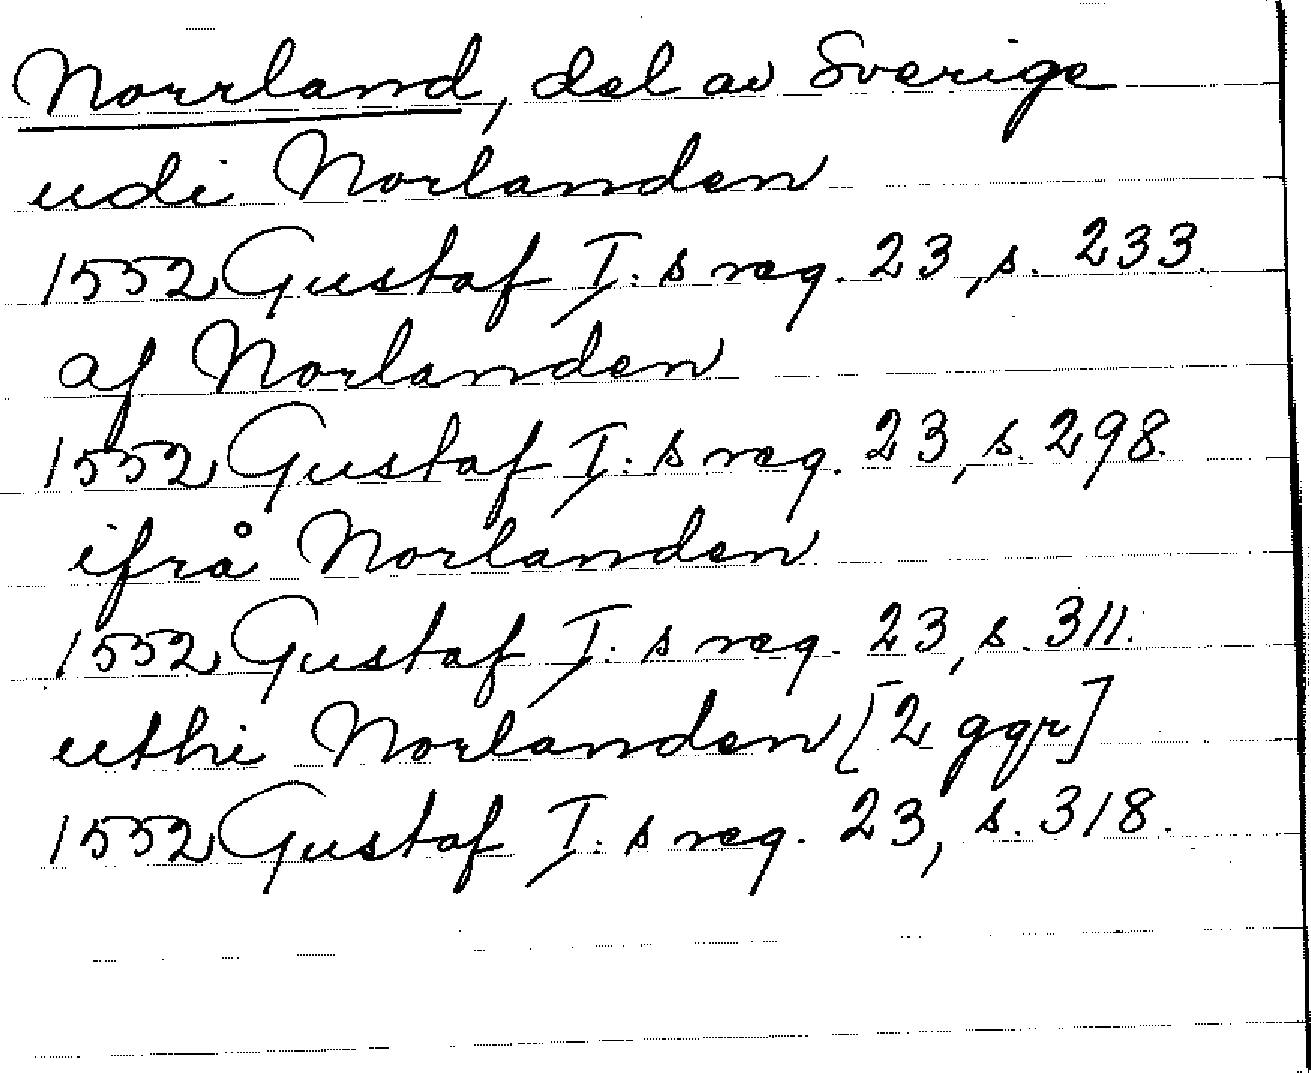 Norrland, del av Sverige
udi Norlanden
1552 Gustaf I:s reg. 23, s. 233.
af Norlanden
1552 Gustaf I:s reg. 23, s. 298.
ifrå Norlanden
1552 Gustaf I:s reg. 23, s. 311.
uthi Norlanden [2 ggr]
1552 Gustaf I:s reg. 23, s. 318.